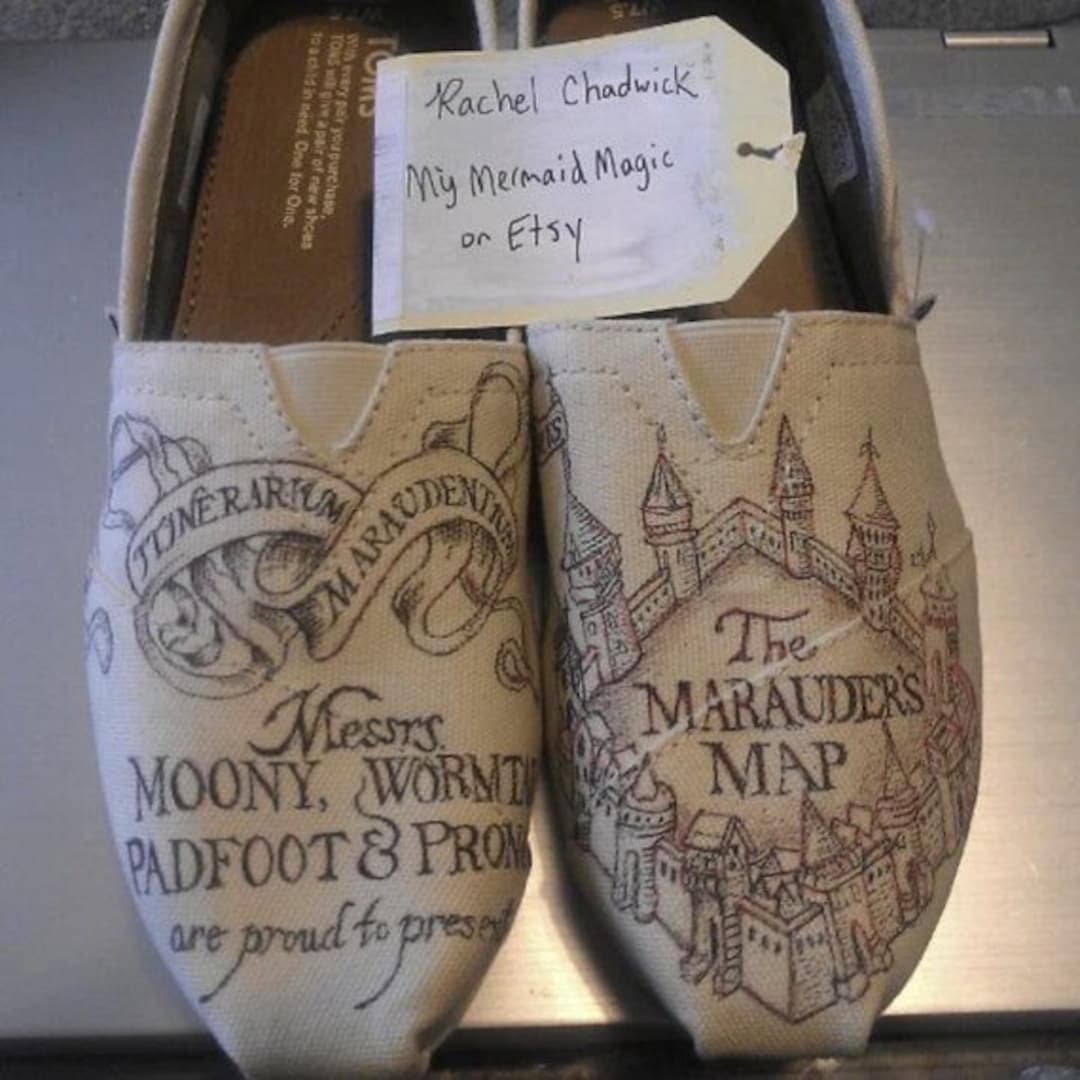 TOMS
With every pair you purchase,
TOMS will give a pair of new shoes
to a child in need. One for One.
Rachel Chadwick
My Mermaid Magic
on Etsy
ITINERARIUM
MARAUDENTIUM
Messrs.
MOONY, WORMTA
PADFOOT & PRON
are proud to present
The
MARAUDER'S
MAP